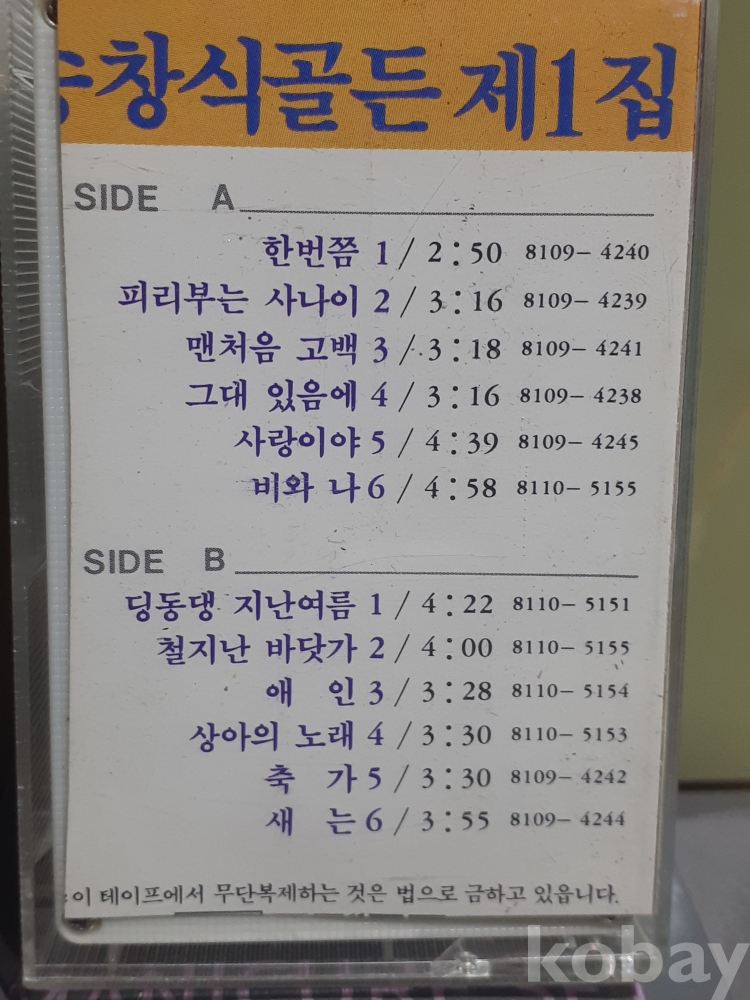 송창식골든 제1집
SIDE A
한번쯤 1 / 2:50 8109-4240
피리부는 사나이 2 / 3:16 8109-4239
맨처음 고백 3 / 3:18 8109-4241
그대 있음에 4 / 3:16 8109-4238
사랑이야 5 / 4:39 8109-4245
비와 나 6 / 4:58 8110-5155
SIDE B
딩동댕 지난여름 1 / 4:22 8110-5151
철지난 바닷가 2 / 4:00 8110-5155
애 인 3 / 3:28 8110-5154
상아의 노래 4 / 3:30 8110-5153
축 가 5 / 3:30 8109-4242
새 는 6 / 3:55 8109-4244
:이 테이프에서 무단복제하는 것은 법으로 금하고 있읍니다.
kobay